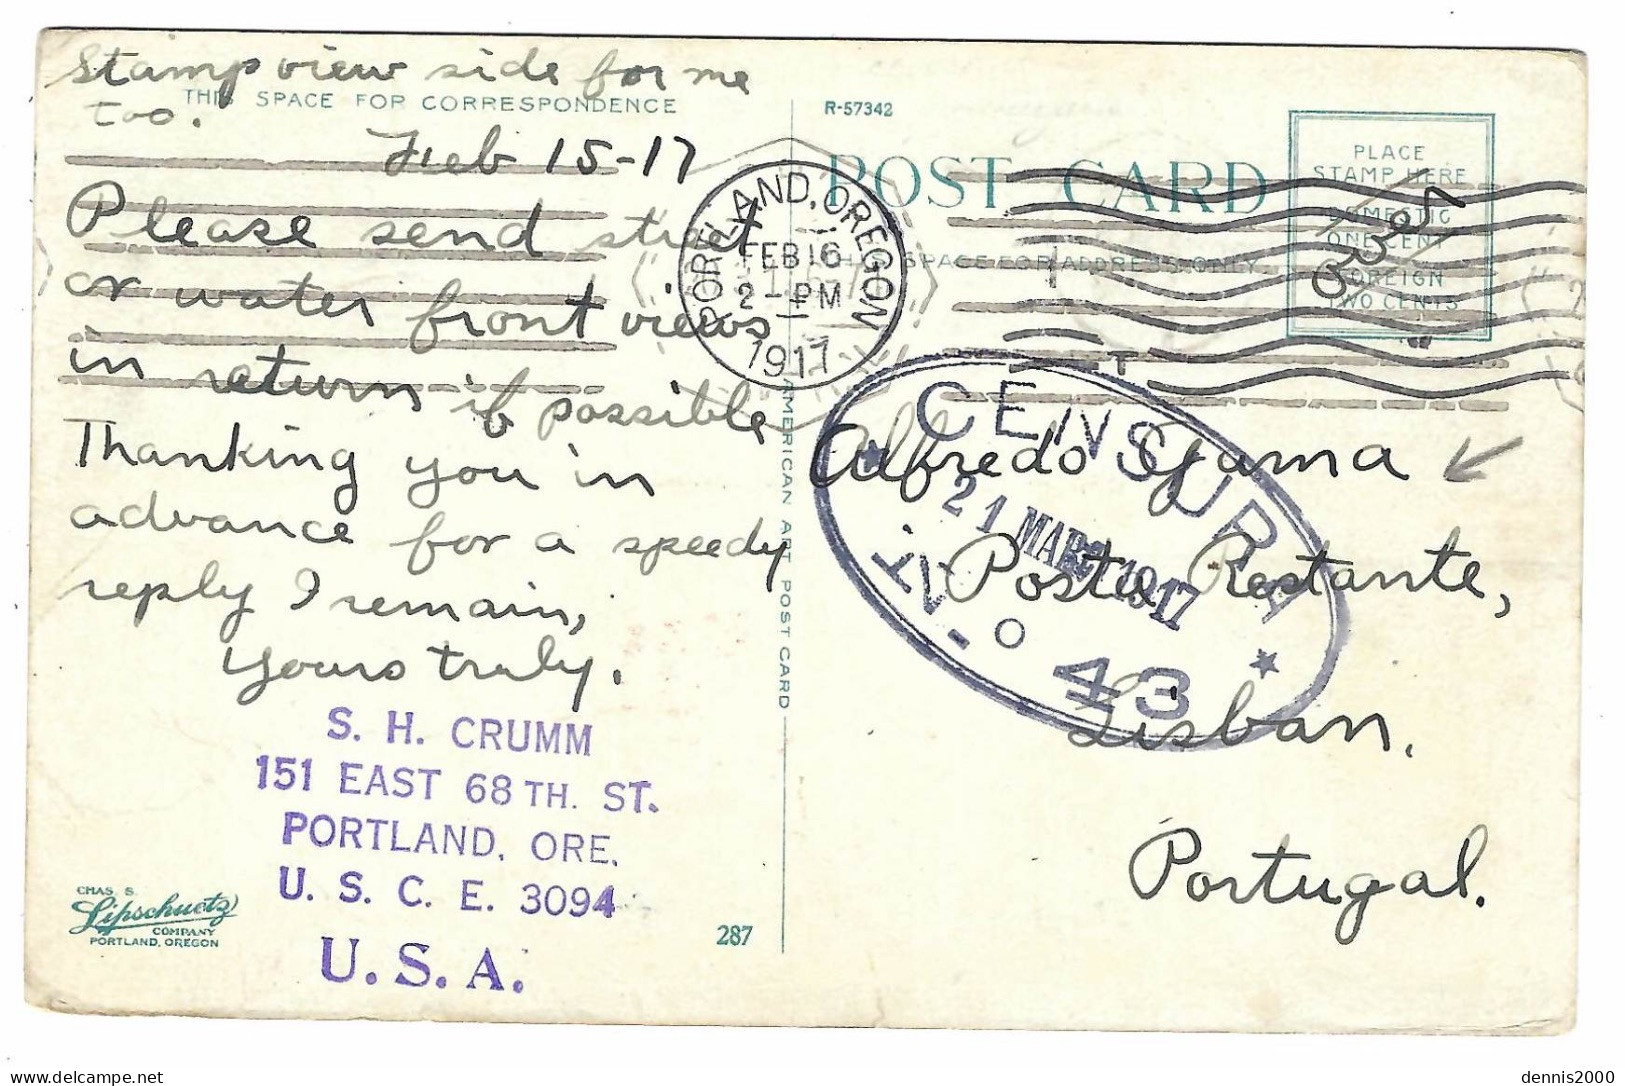 Stamp view side for me
too.
THIS SPACE FOR CORRESPONDENCE
Feb 15-17
Please send strit
or water front views
in return if possible
Thanking you in
advance for a speedy
reply I remain,
Yours truly.
S. H. CRUMM
151 EAST 68 TH. ST.
PORTLAND, ORE.
U. S. C. E. 3094
U. S. A.
CHAS. S.
Lipschuetz
COMPANY
PORTLAND, OREGON
287
AMERICAN ART POST CARD
R-57342
POST CARD
THIS SPACE FOR ADDRESS ONLY
PLACE
STAMP HERE
DOMESTIC
ONE CENT
FOREIGN
TWO CENTS
Over
PORTLAND, OREGON
FEB 16
2-PM
1917
T
CENSURA
21 MAR 1917
N.o 43
Alfredo Gama
Poste Restante,
Lisban.
Portugal.
dennis2000